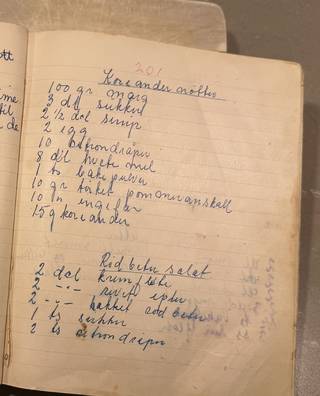 ott
201
Koriander nötter
100 gr marg
3 dl sukker
2 1/2 dcl sirup
2 egg
10 citrondråper
8 d'l hvete mel
1 ts bake pulver
10 gr törket pommeranskall
10 " ingefær
15 g koriander
Röd beter salat
2 dcl krem fløte
2 -"- revet epler
2 -"- hakket röd beter
1 ts sukker
2 ts citrondråper